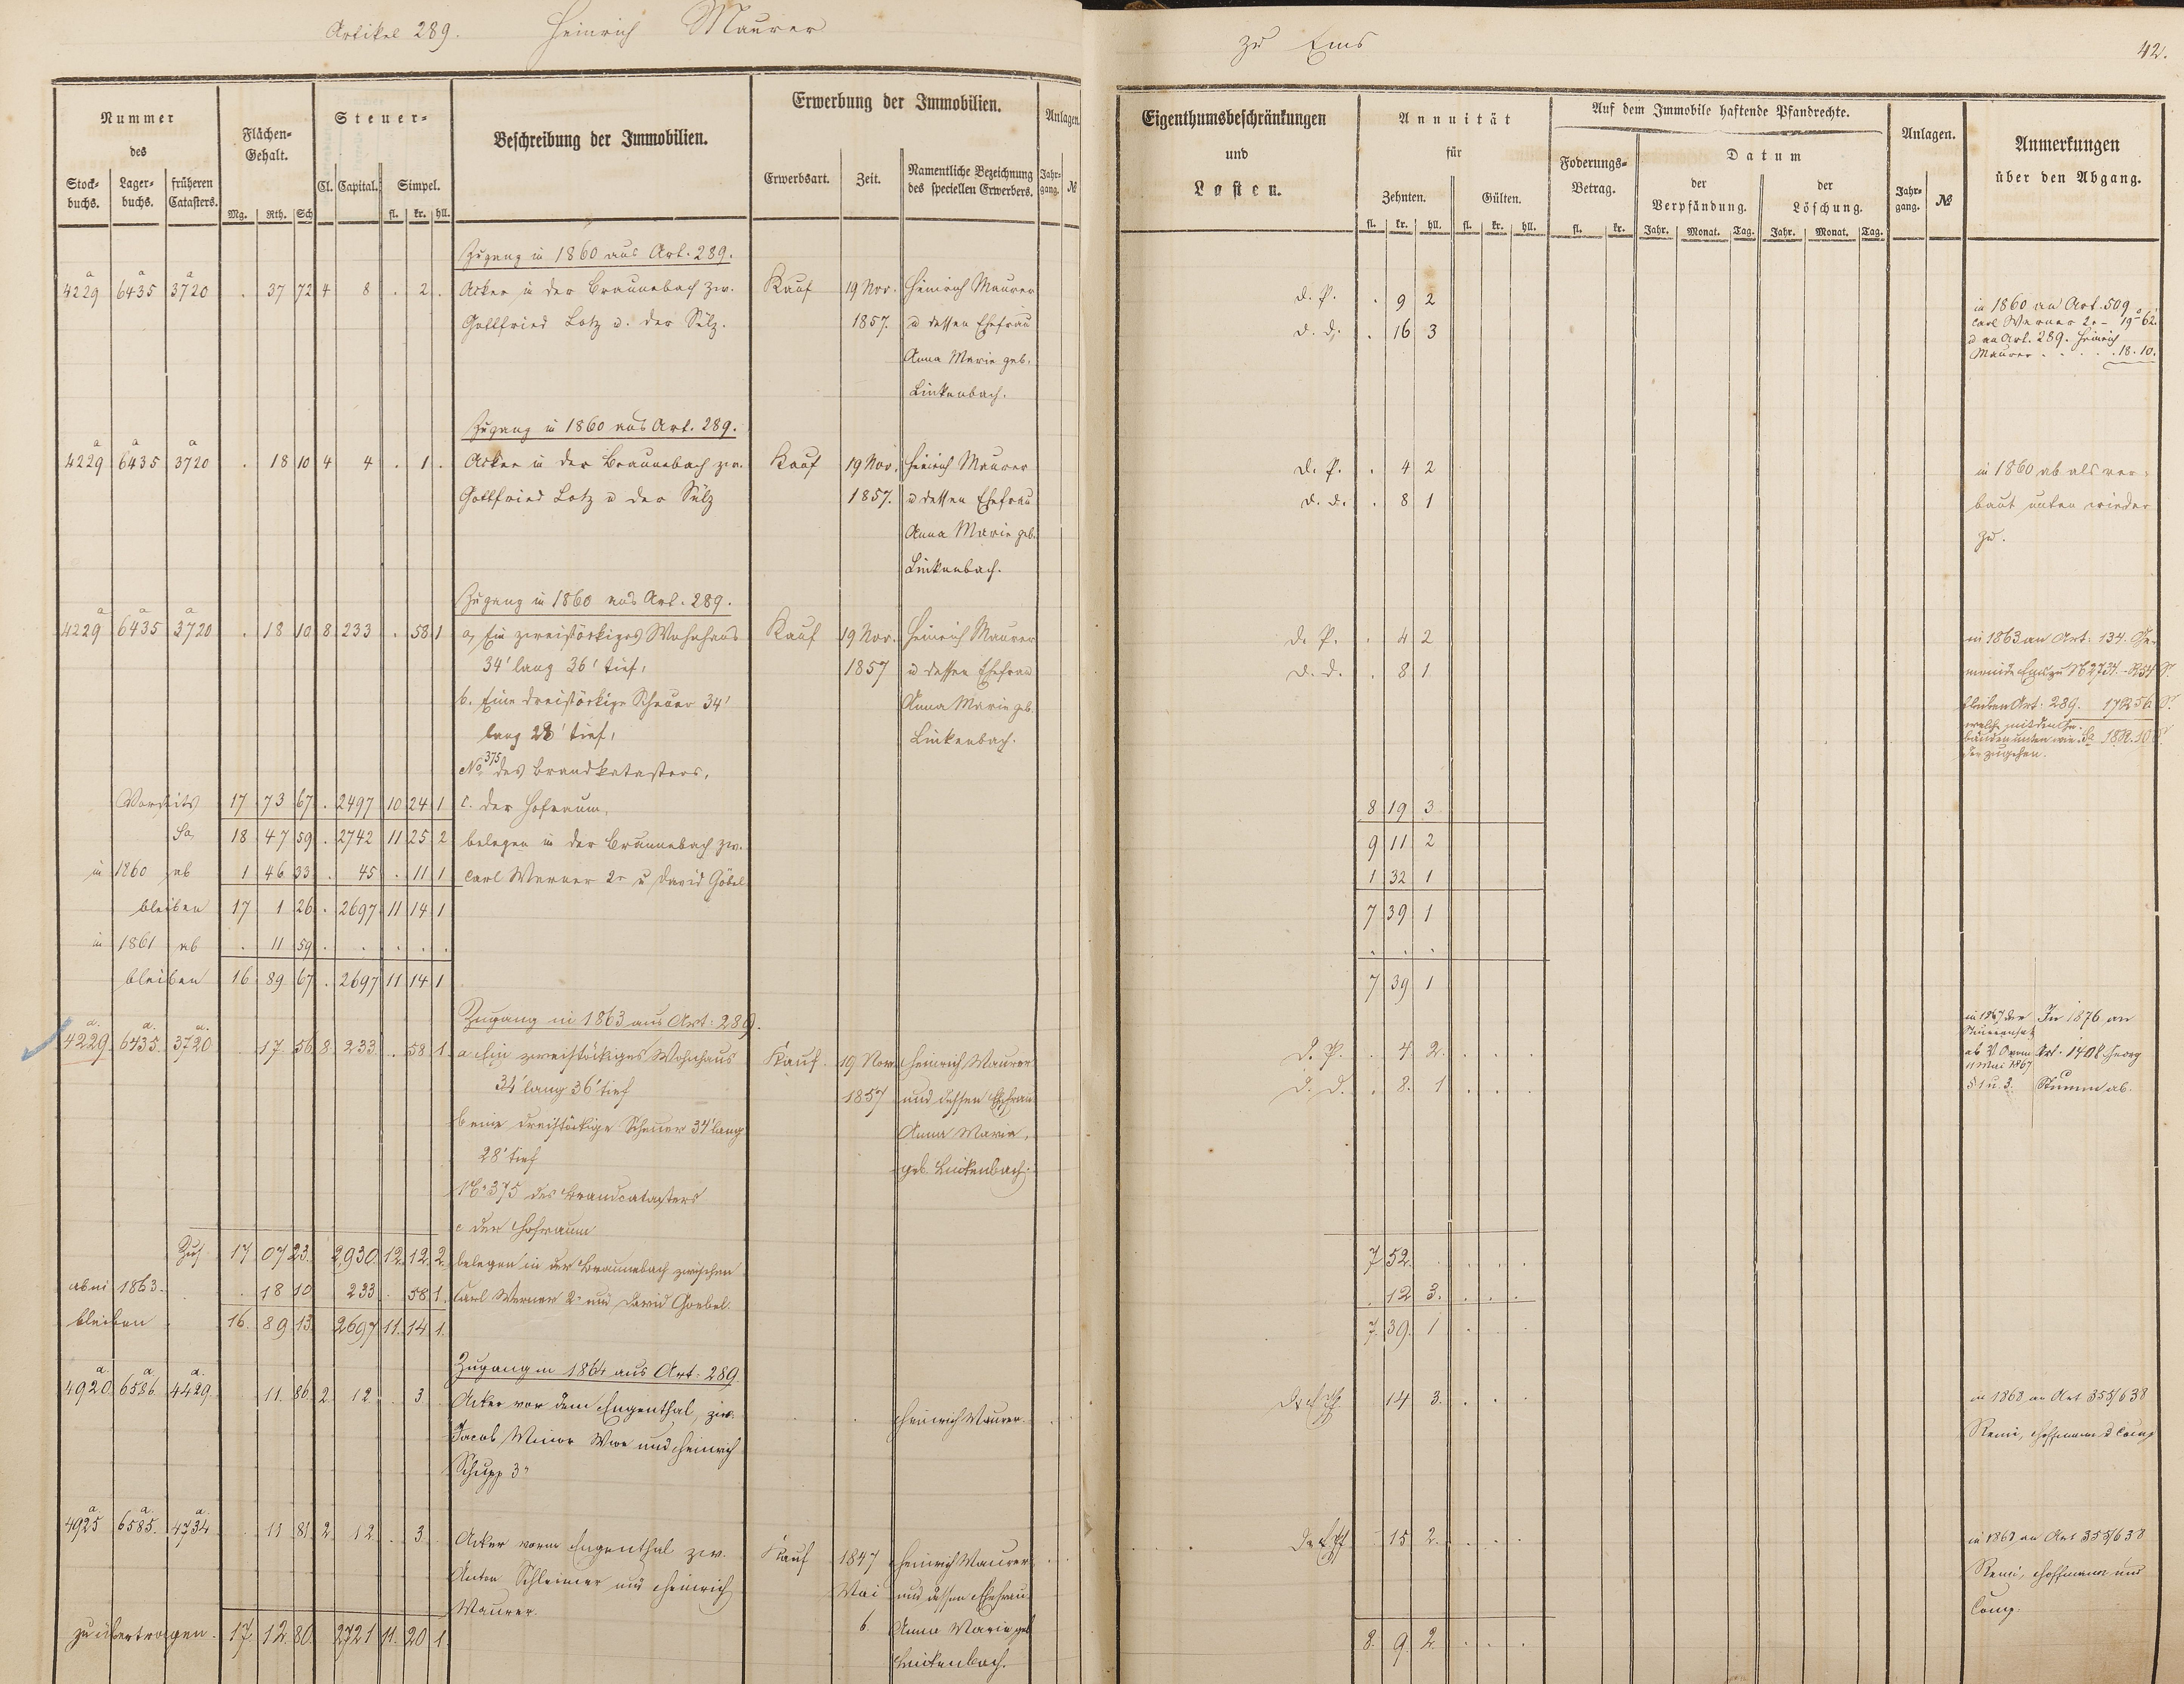 Artikel 289. Heinrich Maurer
zu Ems
42.
Nummer des
Stock-buchs. Lager-buchs. früheren Catasters.
Flächen-Gehalt.
Mg. Rth. Sch
Steuer-
Cl. Capital. Simpel.
fl. kr. hll.
Beschreibung der Immobilien.
Erwerbung der Immobilien.
Erwerbsart. Zeit. Namentliche Bezeichnung des speciellen Erwerbers.
Anlagen.
Jahr-gang. №
Eigenthumsbeschränkungen und Lasten.
Annuität für
Zehnten. Gülten.
fl. kr. hll. fl. kr. hll.
Auf dem Immobile haftende Pfandrechte.
Foderungs-Betrag.
fl. kr.
Datum
der Verpfändung. der Löschung.
Jahr. Monat. Tag. Jahr. Monat. Tag.
Anlagen.
Jahr-gang. №
Anmerkungen über den Abgang.
Zugang in 1860 aus Art. 289.
4229 a 6435 a 3720 a . 37 72 4 8 . 2 . Acker in der Braunebach zw. Kauf 19 Nov. Heinrich Maurer d. P. . 9 2
Gottfried Lotz u. der Sülz. 1857. u dessen Ehefrau d. d. . 16 3
Anna Marie geb.
Linkenbach.
in 1860 an Art. 509
Carl Werner 2r - 19 - 62.
u an Art. 289. Heinrich
Maurer . . . . . 18. 10.
Zugang in 1860 aus Art. 289.
4229 a 6435 a 3720 a . 18 10 4 4 . 1 . Acker in der Braunebach zw. Kauf 19 Nov. Heinrich Maurer d. P. . 4 2
Gottfried Lotz u der Sülz 1857. u dessen Ehefrau d. d. . 8 1
Anna Marie geb.
Linkenbach.
in 1860 ab als ver-
baut unten wieder
zu.
Zugang in 1860 aus Art. 289.
4229 a 6435 a 3720 a . 18 10 8 233 . 58 1 a, Ein zweistöckiges Wohnhaus Kauf 19 Nov. Heinrich Maurer d. P. . 4 2
34' lang 36' tief, 1857 u dessen Ehefrau d. d. . 8 1
b. Eine dreistöckige Scheuer 34' Anna Marie geb.
lang 28' tief, Linkenbach.
No 375 des Brandkatasters,
in 1863 an Art: 134. Ge-
meinde Ems
bleiben Art: 289. 17R 56 S.
welche mit den Ge-
bäuden unten wie-
der zugehen.
Vorseits 17 73 67 . 2497 10 24 1 c. der Hofraum, 8 19 3
Sa 18 47 59 . 2742 11 25 2 belegen in der Braunebach zw. 9 11 2
in 1860 ab 1 46 33 . 45 . 11 1 Carl Werner 2r u David Göbel 1 32 1
bleiben 17 1 26 . 2697 11 14 1 7 39 1
in 1861 ab . 11 59 . . . . . . . .
bleiben 16 89 67 . 2697 11 14 1 7 39 1
Zugang in 1863 aus Art: 289.
4229 a. 6435 a. 3720 a. . 17 56 8 233 . 58 1 a Ein zweistöckiges Wohnhaus Kauf. 19 Nov. Heinrich Maurer d. P. . 4 2.
34' lang 36' tief 1857 und dessen Ehefrau d. d. . 8. 1
b eine dreistöckige Scheuer 34' lang Anna Marie,
28' tief geb. Linkenbach.
No 375 des Brandcatasters
c der Hofraum
in 1867 der
ab V O vom
11 Mai 1867
§ 1 u. 3.
In 1876 an
Art. 1408 Georg
Stumm ab.
Zus 17 07 23 2,930 12 12 2. belegen in der Braunebach zwischen 7 52.
ab in 1863. . 18 10 233 . 58 1. Carl Werner 2r und David Goebel. . 12 3.
bleiben 16. 89 13 2697 11 14 1. 7. 39. 1
Zugang in 1864 aus Art: 289.
4920 a. 6586 a. 4429 a. 11. 86 2 12 . 3 . Acker vor dem Engenthal, zw. Heinrich Maurer. 14 3.
Jacob Minor Wwe und Heinrich
Schupp 3r
in 1868 an Art 355/638
Remi, Hoffmann u Comp
4925 a. 6585 a. 4734 a. . 11 81 2 12 . 3. Acker vorm Engenthal zw. Kauf 1847 Heinrich Maurer 15 2.
Anton Schleimer und Heinrich Mai und dessen Ehefrau
Maurer. 6 Anna Marie geb
Linkenbach.
in 1868 an Art 355/638
Remi, Hoffmann und
Comp.
zu übertragen. 17. 12. 80. 2721 11. 20 1. 8. 9. 2.